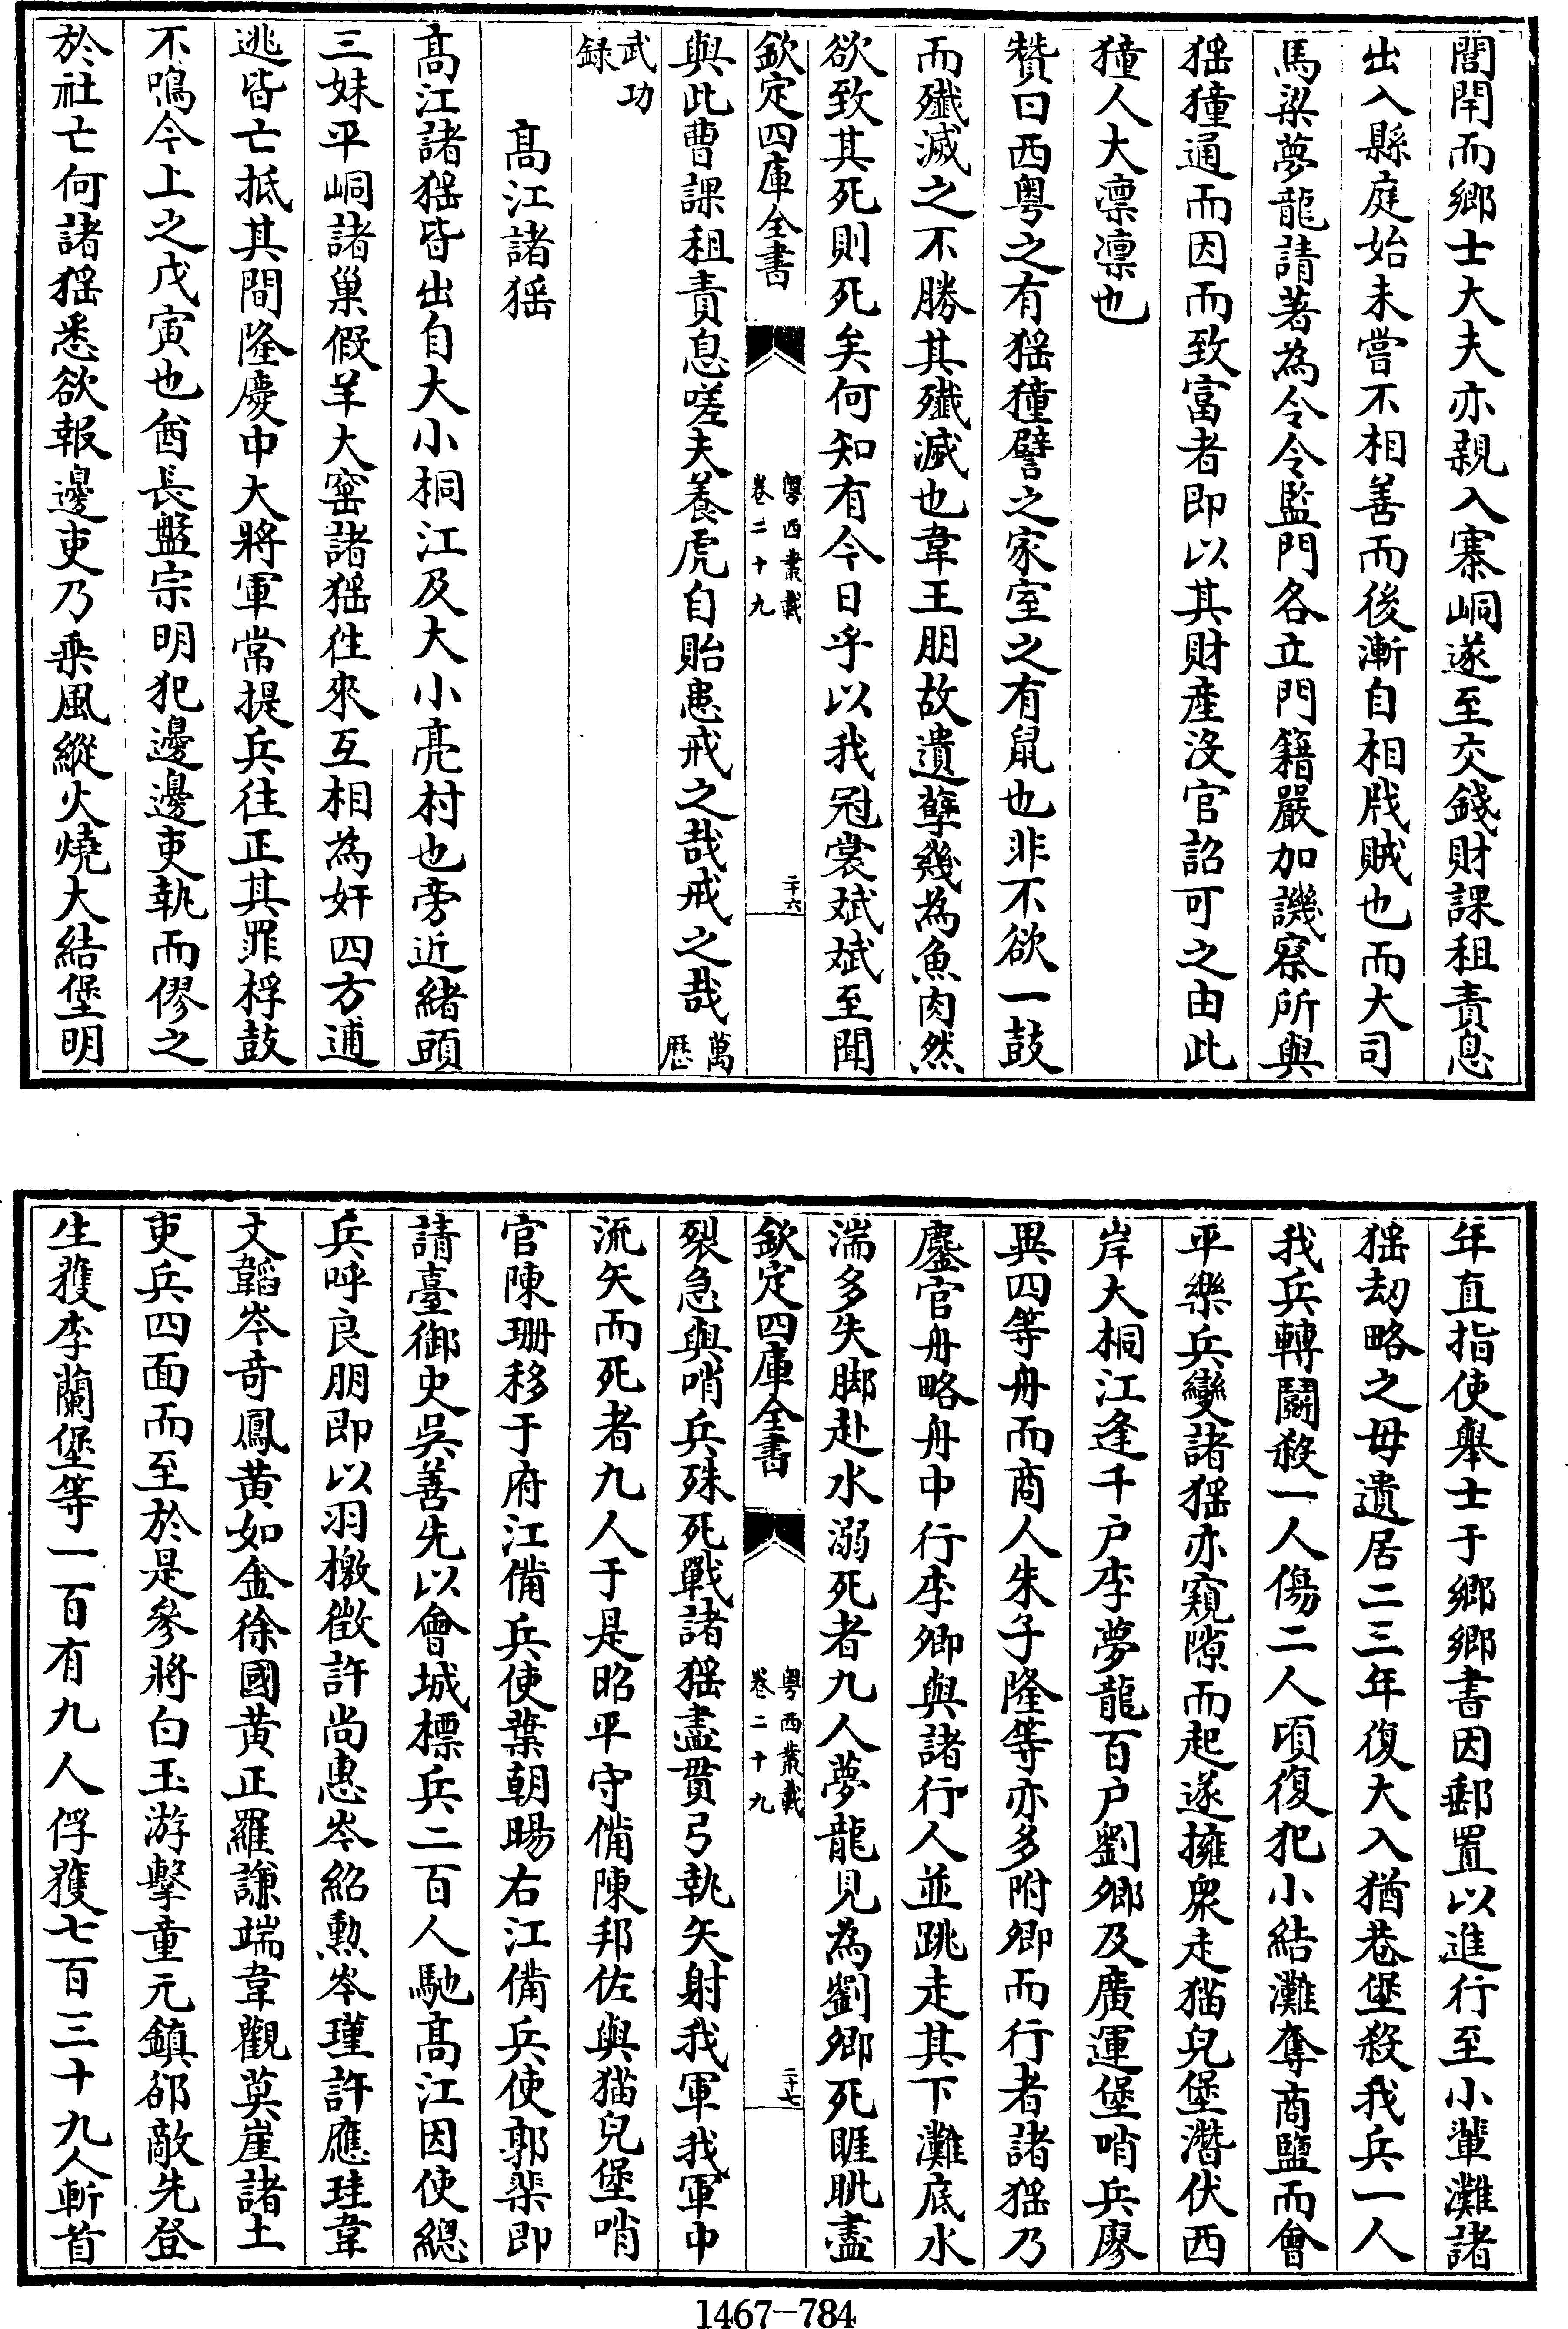 閭閈而鄉士大夫亦親入寨峒遂至交錢財課租責息
出入縣庭始未嘗不相善而後漸自相戕賊也而大司
馬梁夢龍請著為令令監門各立門籍嚴加譏察所與
猺獞通而因而致富者即以其財產沒官詔可之由此
獞人大凛凛也
贊曰西粤之有猺獞譬之家室之有鼠也非不欲一鼓
而殲滅之不勝其殲滅也韋王朋故遺孽幾為魚肉然
欲致其死則死矣何知有今日乎以我冠裳斌斌至聞
欽定四庫全書
粤西叢載
卷二十九
二十六
與此曹課租責息嗟夫養虎自貽患戒之哉戒之哉萬歷
武功録
高江諸猺
高江諸猺皆出自大小桐江及大小亮村也旁近緒頭
三妹平峒諸巢假羊大窰諸猺徃來互相為奸四方逋
逃皆亡抵其間隆慶中大將軍常提兵往正其罪桴鼓
不鳴今上之戊寅也酋長盤宗明犯邊邊吏執而僇之
於社亡何諸猺悉欲報邊吏乃乗風縱火燒大結堡明
年直指使舉士于鄉鄉書因郵置以進行至小輋灘諸
猺刼略之毋遺居二三年復大入猶巷堡殺我兵一人
我兵轉鬬殺一人傷二人頃復犯小結灘奪商鹽而會
平樂兵變諸猺亦窺隙而起遂擁衆走猫兒堡潛伏西
岸大桐江逢千户李夢龍百户劉鄉及廣運堡哨兵廖
異四等舟而商人朱子隆等亦多附卿而行者諸猺乃
鏖官舟略舟中行李鄉與諸行人並跳走其下灘底水
湍多失脚赴水溺死者九人夢龍見為劉鄉死睚眦盡
欽定四庫全書
粤西叢載
卷二十九
二十七
裂急與哨兵殊死戰諸猺盡貫弓執矢射我軍我軍中
流矢而死者九人于是昭平守備陳邦佐與猫兒堡哨
官陳珊移于府江備兵使葉朝暘右江備兵使郭棐即
請臺御史吳善先以會城標兵二百人馳高江因使總
兵呼良朋即以羽檄徵許尚惠岑紹勲岑瑾許應珪韋
文韜岑奇鳳黄如金徐國黄正羅謙端韋觀莫崖諸土
吏兵四面而至於是參將白玉游擊童元鎮邵敵先登
生獲李蘭堡等一百有九人俘獲七百三十九人斬首
1467-784